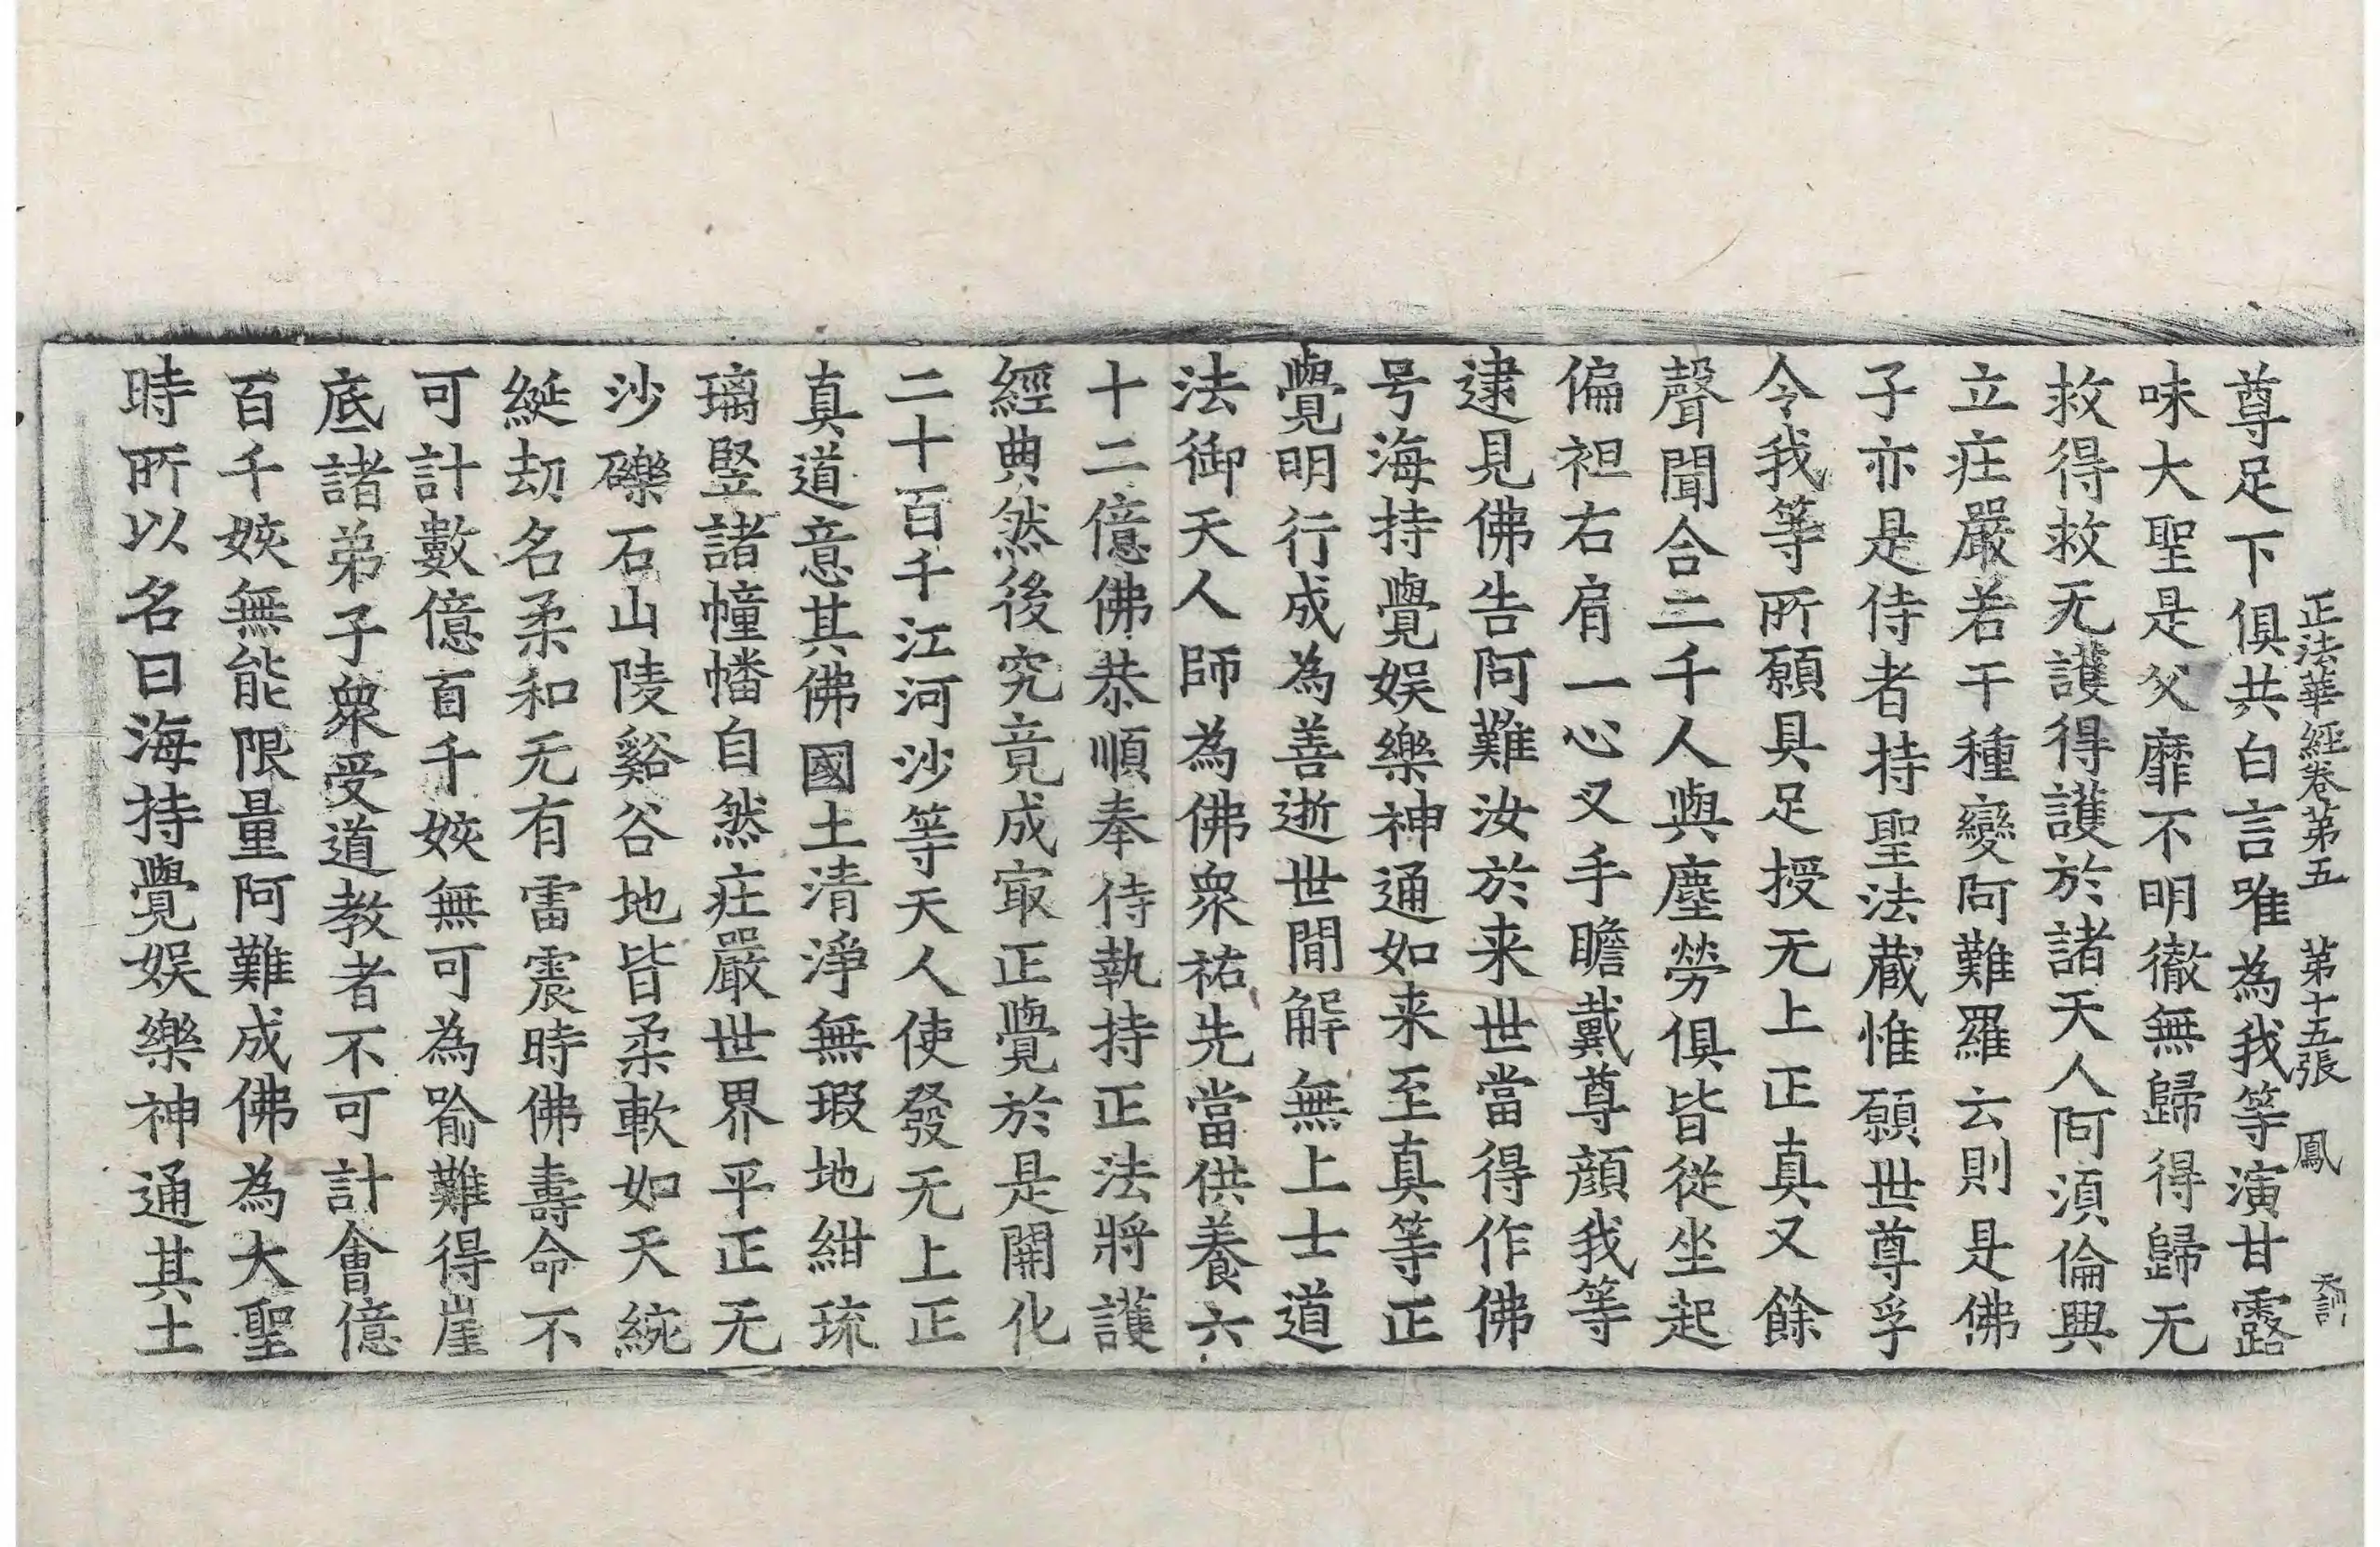 正法華經卷第五 第十五張 鳳 天訓
尊足下俱共白言唯為我等演甘露
味大聖是父靡不明徹無歸得歸无
救得救无護得護於諸天人阿湏倫興
立庄嚴若干種變阿難羅云則是佛
子亦是侍者持聖法蔵惟願世尊孚
令我等所願具足授无上正真又餘
聲聞合二千人與塵勞俱皆從坐起
偏袒右肩一心叉手瞻戴尊顔我等
逮見佛告阿難汝於来世當得作佛
号海持覺娛樂神通如来至真等正
覺明行成為善逝世間解無上士道
法御天人師為佛衆祐先當供養六
十二億佛恭順奉侍執持正法將護
經典然後究竟成㝡正覺於是開化
二十百千江河沙等天人使發无上正
真道意其佛國土清淨無瑕地紺琉
璃竪諸幢幡自然庄嚴世界平正无
沙礫石山陵谿谷地皆柔軟如天綩
綖劫名柔和无有雷震時佛壽命不
可計數億百千姟無可為喻難得崖
底諸弟子衆受道教者不可計會億
百千姟無能限量阿難成佛為大聖
時所以名曰海持覺娛樂神通其土